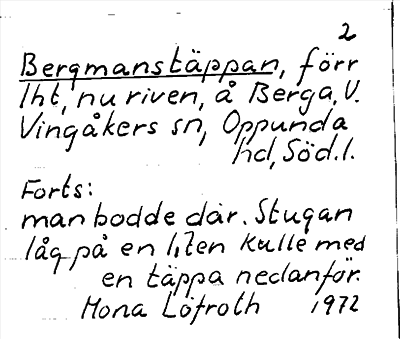 2
Bergmanstäppan, förr
lht, nu riven, å Berga, V.
Vingåkers sn, Oppunda
hd, Söd. l.
Forts:
man bodde där. Stugan
låg på en liten kulle med
en täppa nedanför.
Mona Löfroth 1972